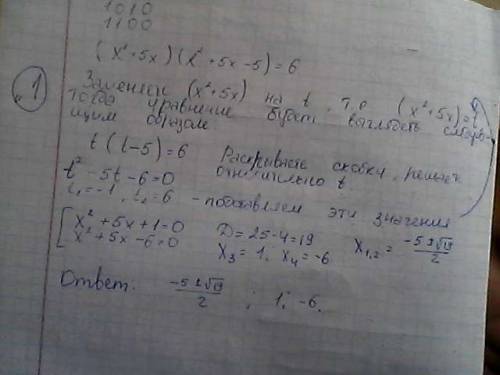 1010
1100
(x²+5x)(x²+5x-5)=6
1 Заменяем (x²+5x) на t, т.е (x²+5x)=t
тогда уравнение будет выглядеть следую-
щим образом
t(t-5)=6 Раскрываем скобки, решаем
t²-5t-6=0 относительно t.
t₁=-1, t₂=6 - подставляем эти значения
[x²+5x+1=0 D=25-4=19 X₁,₂=(-5±√19)/2
x²+5x-6=0 X₃=1, X₄=-6
Ответ: (-5±√19)/2 ; 1; -6.